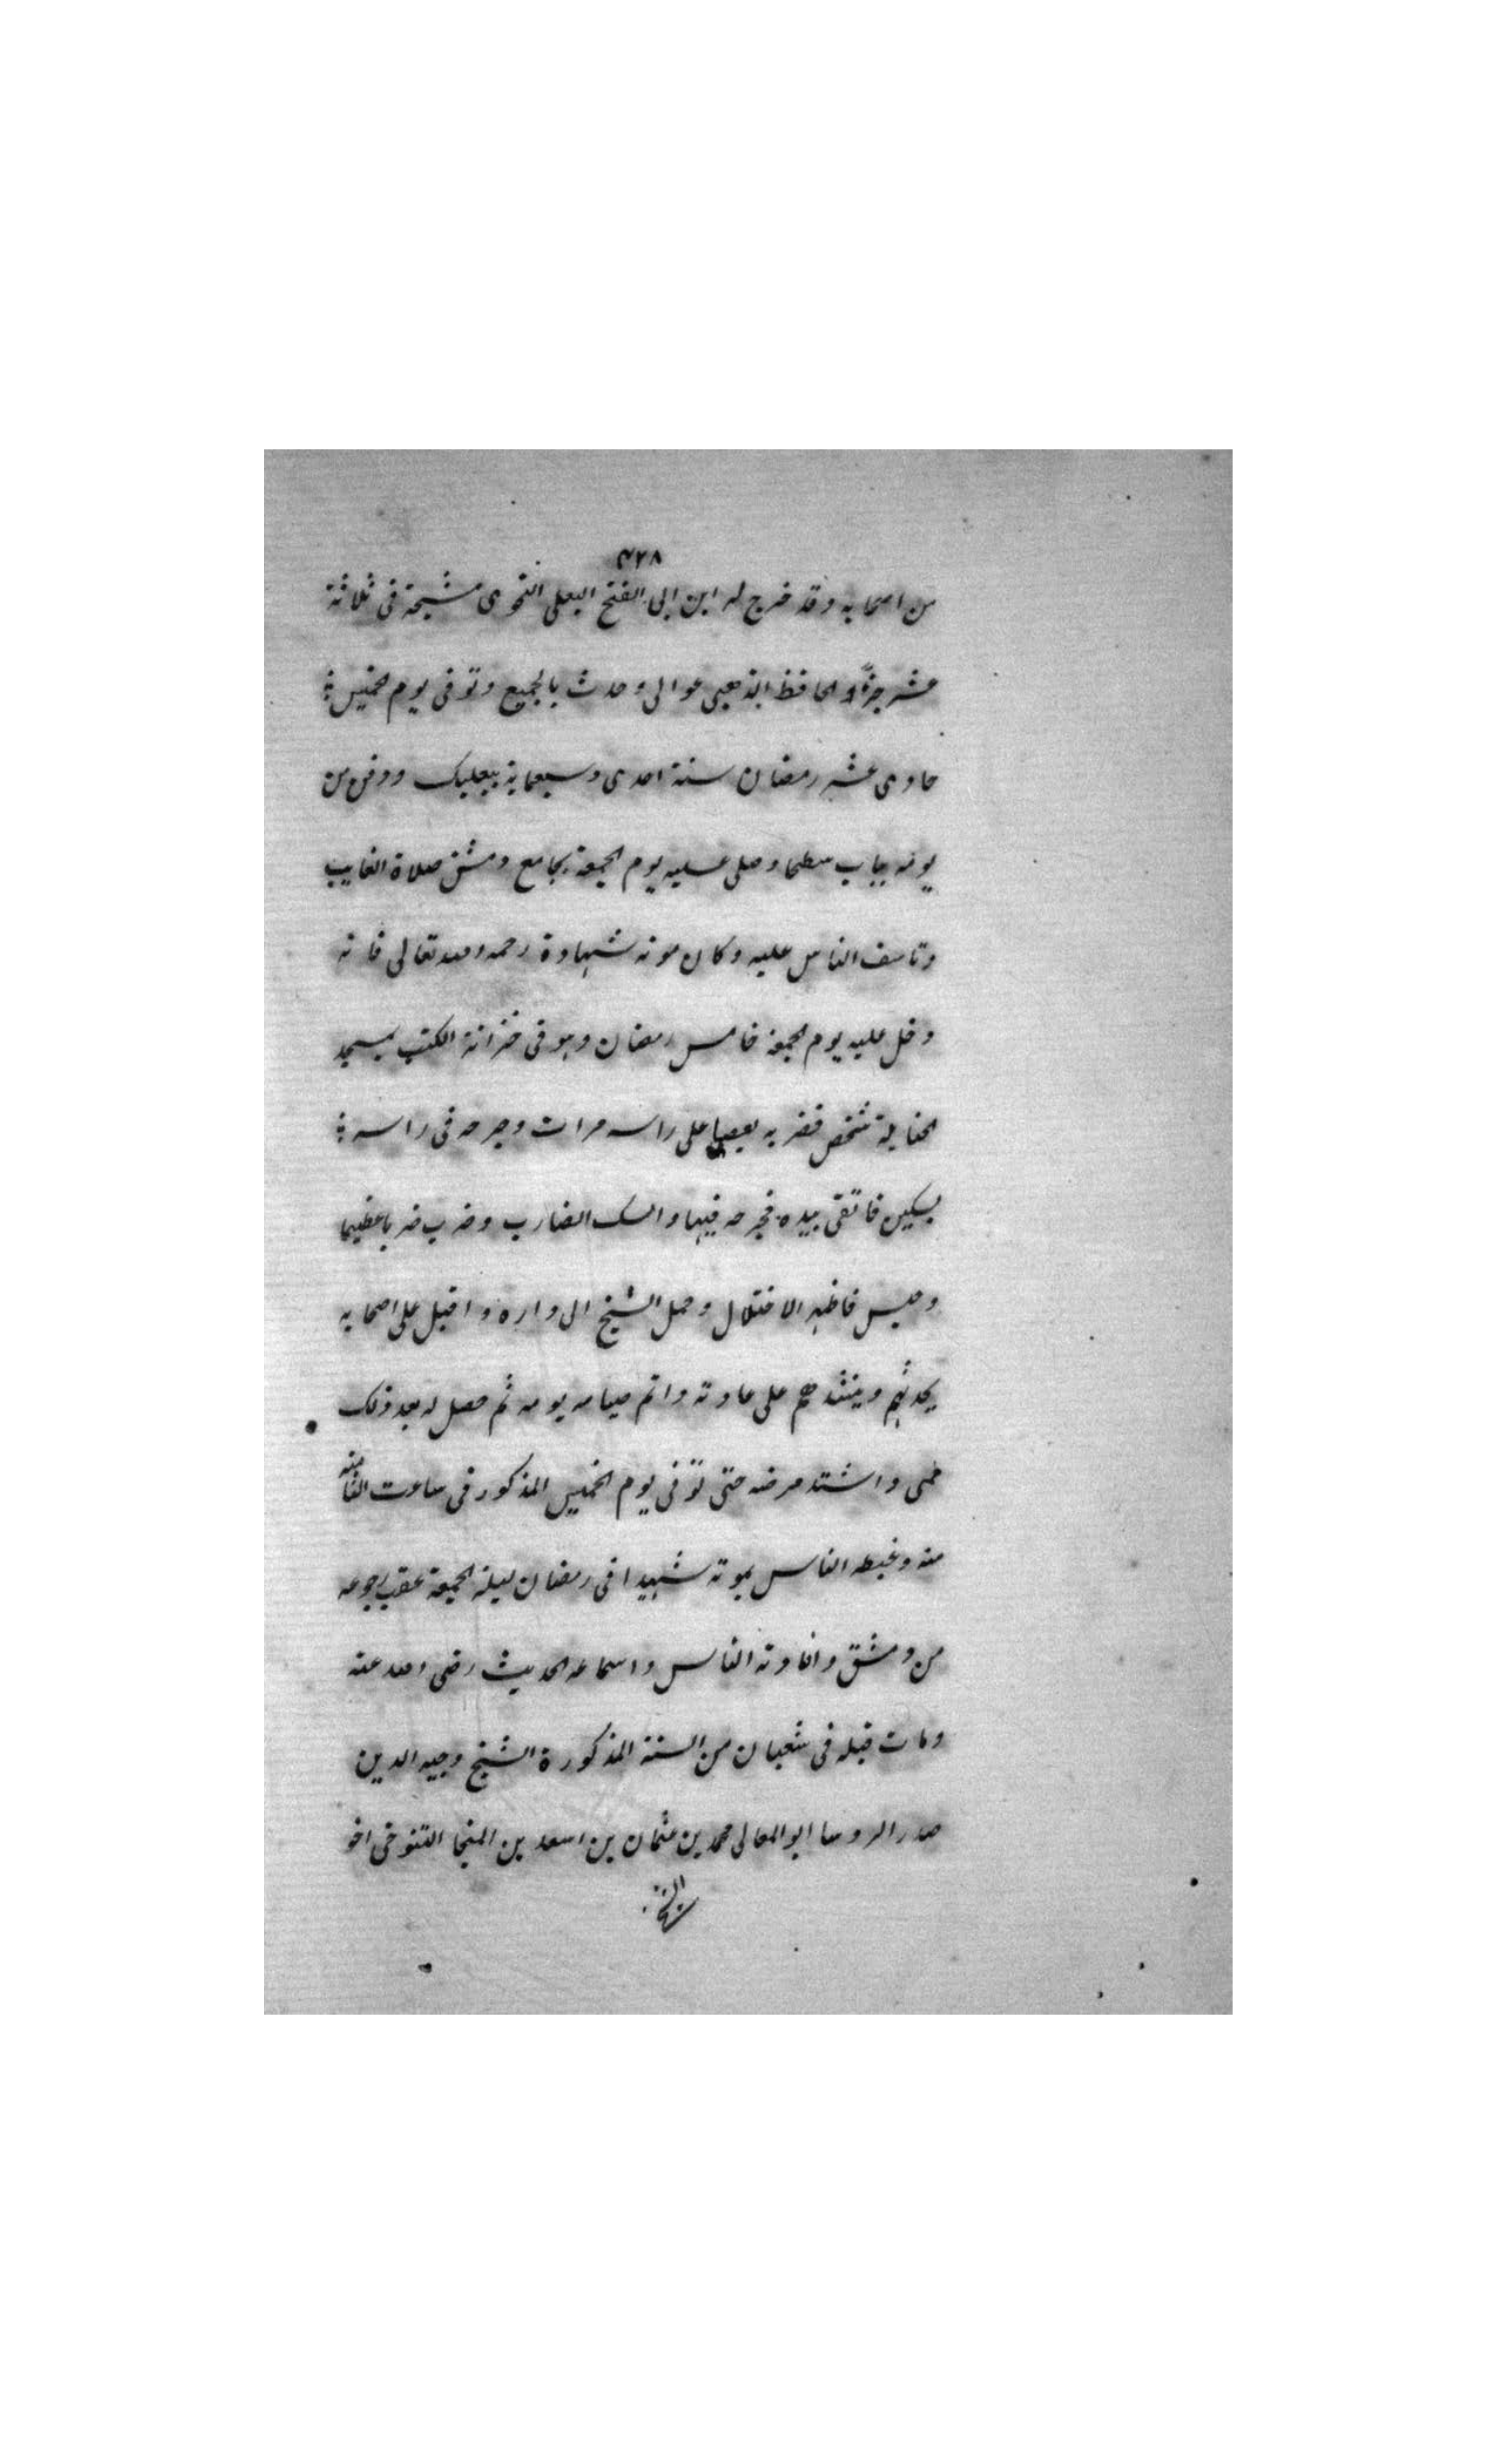 ٤٢٨
من اصحابه وقد خرج له ابن ابى الفتح البعلى النحوى مشيخة فى ثلاثة
عشر جزءًا والحافظ الذهبى عوالى وحدث بالجميع وتوفى يوم الخميس
حادى عشر رمضان سنة احدى وسبعماية ببعلبك ودفن من
يومه بباب سطحا وصلى عليه يوم الجمعة بجامع دمشق صلاة الغايب
وتاسف الناس عليه وكان موته شهادة رحمه الله تعالى فانه
دخل عليه يوم الجمعة خامس رمضان وهو فى خزانة الكتب بمسجد
الحنابلة شخص فضربه بعصا على راسه مرات وجرحه فى راسه
بسكين فاتقى بيده فجرحه فيها وامسك الضارب وضرب ضربا عظيما
وحبس فاظهر الاختلال وحمل الشيخ الى داره واقبل على اصحابه
يحدثهم وينشدهم على عادته واتم صيامه يومه ثم حصل له بعد ذلك
حمى واشتد مرضه حتى توفى يوم الخميس المذكور فى ساعت الثامنه
منه وغبطه الناس بموته شهيدا فى رمضان ليلة الجمعة عقب رجوعه
من دمشق وافادته الناس واسماعه الحديث رضى الله عنه
ومات قبله فى شعبان من السنة المذكورة الشيخ وجيه الدين
صدر الروسا ابو المعالى محمد بن عثمان بن اسعد بن المنجا التنوخى اخو
الشيخ